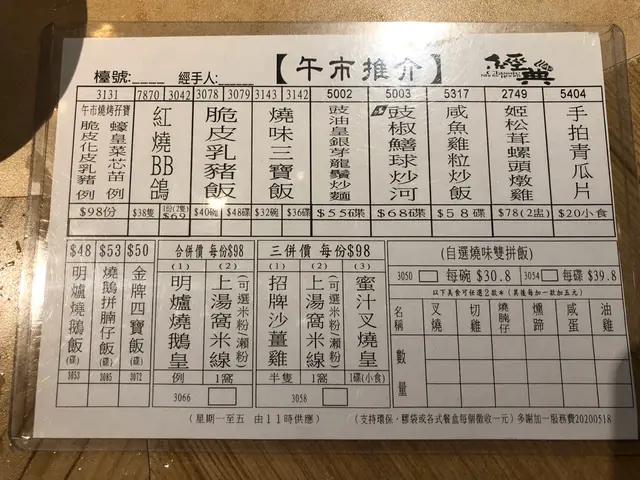 檯號:____ 經手人:_____ 【午市推介】 經典
3131 7870 3042 3078 3079 3143 3142 5002 5003 5317 2749 5404
午市燒烤孖寶
脆皮化皮乳豬 例
蠔皇菜芯苗 例
$98份
紅燒BB鴿
$38隻
1份(2隻)$69
脆皮乳豬飯
$40碗 $48碟
燒味三寶飯
$32碗 $36碟
豉油皇銀芽龍鬚炒麵
$55碟
豉椒鱔球炒河
$68碟
咸魚雞粒炒飯
$58碟
姬松茸螺頭燉雞
$78(2盅)
手拍青瓜片
$20小食
$48 $53 $50
明爐燒鵝飯(碟)
燒鵝拼腩仔飯(碟)
金牌四寶飯(碟)
3053 3085 3072
合併價 每份$98
(1) (2)
明爐燒鵝皇
上湯窩米線
(可選米粉/瀨粉)
例 1窩
3066
三併價 每份$98
(1) (2) (3)
招牌沙薑雞
上湯窩米線
(可選米粉/瀨粉)
蜜汁叉燒皇
半隻 1窩 1碟(小食)
3058
(自選燒味雙拼飯)
3050 每碗 $30.8 3054 每碟 $39.8
以下美食可任選2款 (其後每加一款加五元)
名稱 叉燒 切雞 燒腩仔 燻蹄 咸蛋 油雞
數量
(星期一至五 由11時供應) (支持環保,膠袋或各式餐盒每個徵收一元) 多謝加一服務費20200518